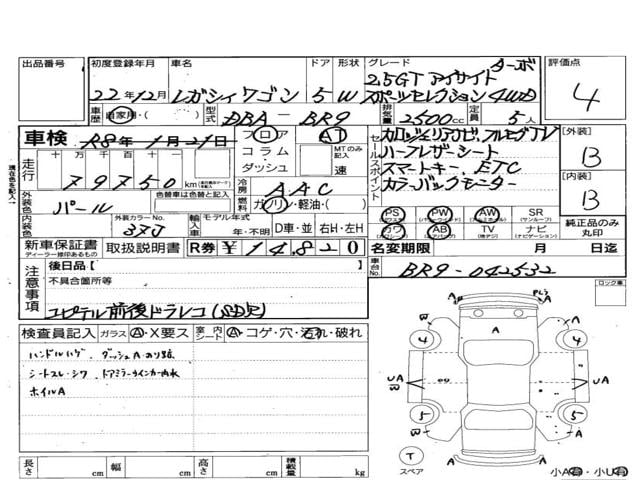 出品番号
初度登録年月 22年12月
車名 レガシィワゴン
ドア 5
形状 W
グレード ターボ
2.5GT アイサイト
スポーツセレクション 4WD
評価点 4
車歴 自家用・( )
型式 DBA-BR9
排気量 2500cc
定員 5人
車検 R8年1月21日
フロア
コラム
ダッシュ
AT
MTのみ記入
速
走行 十万 万 千 百 十
79750 km
冷房 AAC
燃料 ガソリン・軽油・( )
セールスポイント
カロッツェリアナビ、フルセグTV
ハーフレザーシート
スマートキー、ETC
カラーバックモニター
【外装】 B
【内装】 B
外装色 パール
色替車は色替と記入
内装色
外装カラーNo. 37J
輸入車
モデル年式
年・不明
D車・並
右H・左H
PS PW AW SR
カワ AB TV ナビ
純正品のみ丸印
新車保証書
ディーラー捺印あるもの
取扱説明書
R券 ¥14,820
名変期限 月 日迄
注意事項
後日品【 】
不具合箇所等
コピテル前後ドラレコ(SD欠)
車台No. BR9-042532
ロック車
検査員記入
ガラス A・X要ス
室内シート A・コゲ・穴・汚れ・破れ
ハンドルハゲ、ダッシュA・のり跡
シートスレ・シワ、ドアミラーウインカー内水
ホイルA
A
A
W
4
4
A
UA
W
A
UA
5
5
W
A
A
A
T
スペア
小A有・小U有
長さ cm
幅 cm
高さ cm
積載量 kg